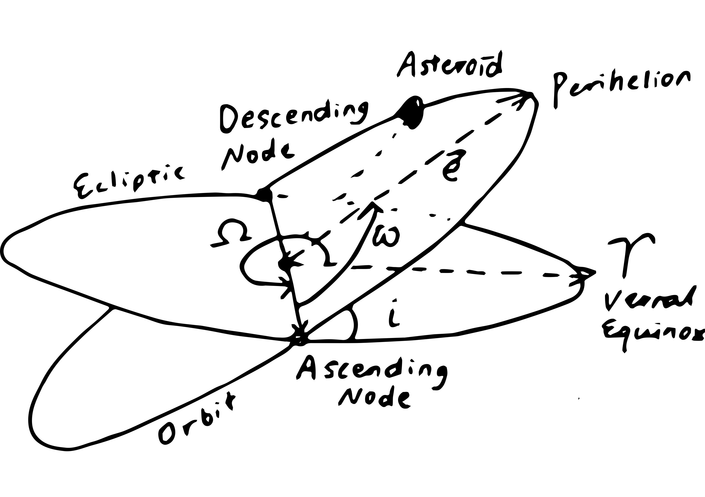 Asteroid
Perihelion
Descending
Node
Ecliptic
e⃗
Ω
ω
♈︎
Vernal
Equinox
i
Ascending
Node
Orbit